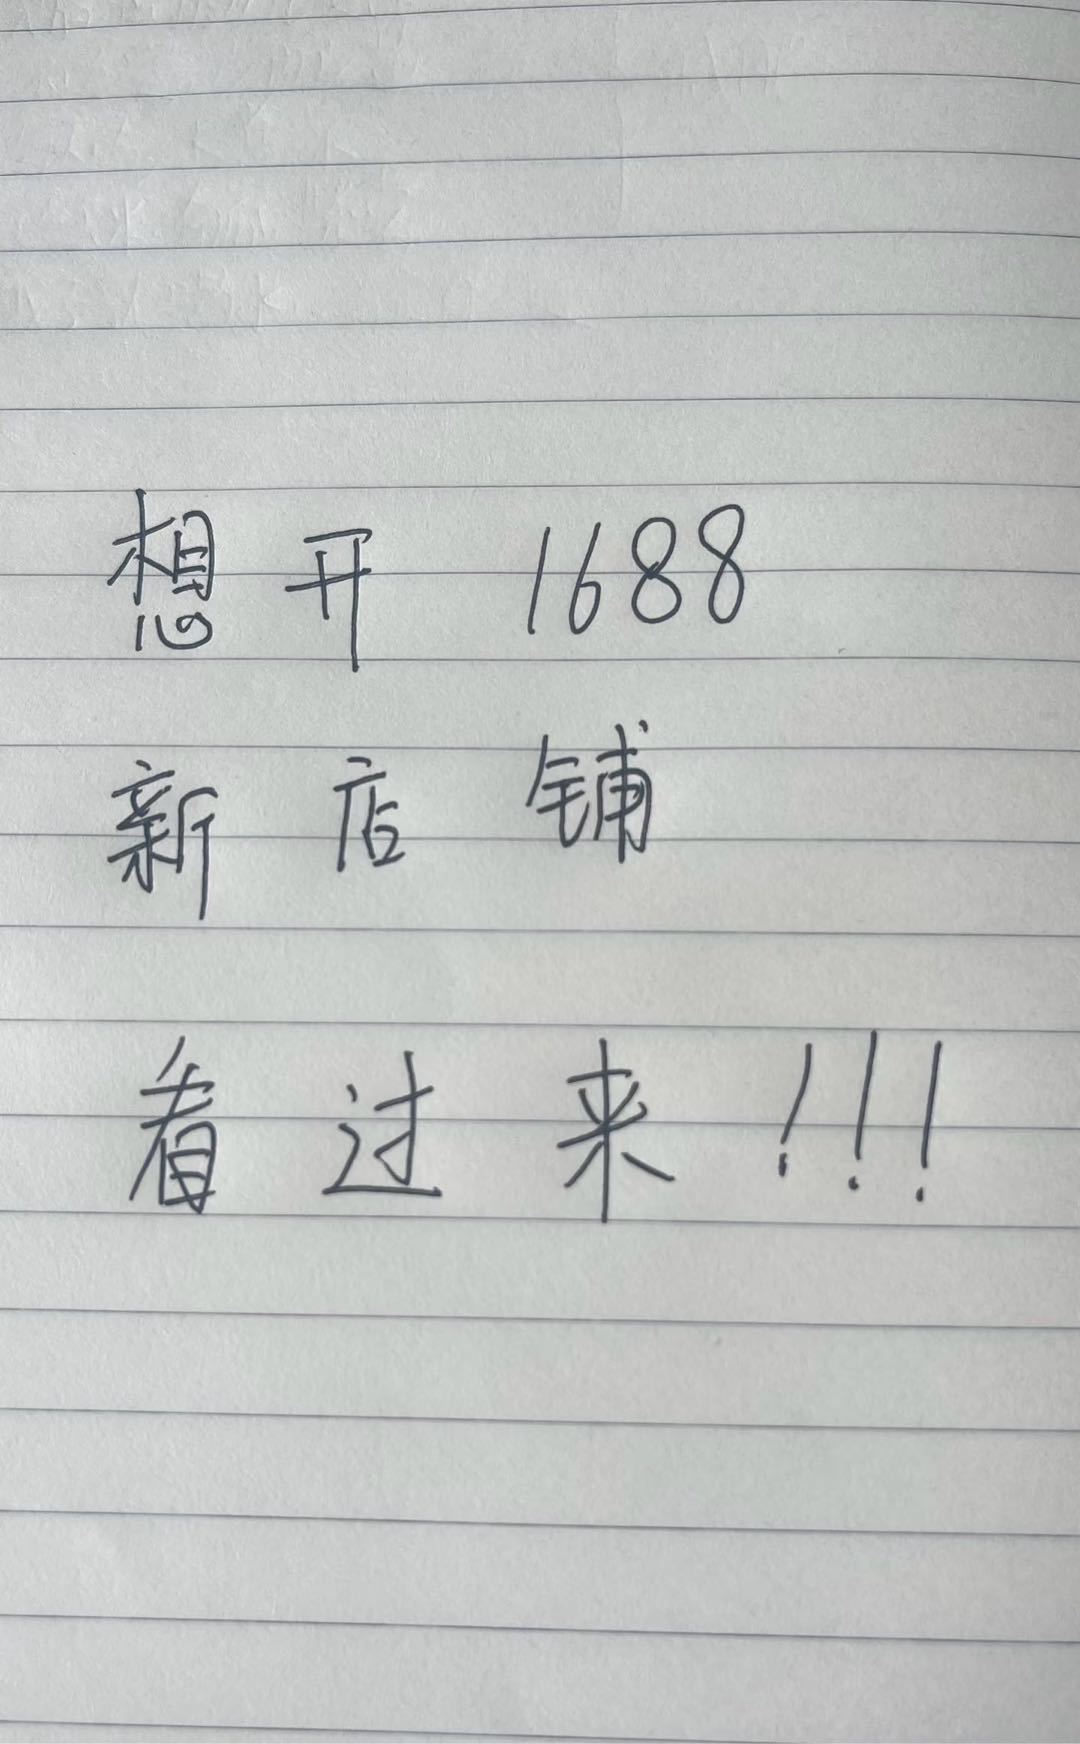 想开 1688
新店铺
看过来!!!